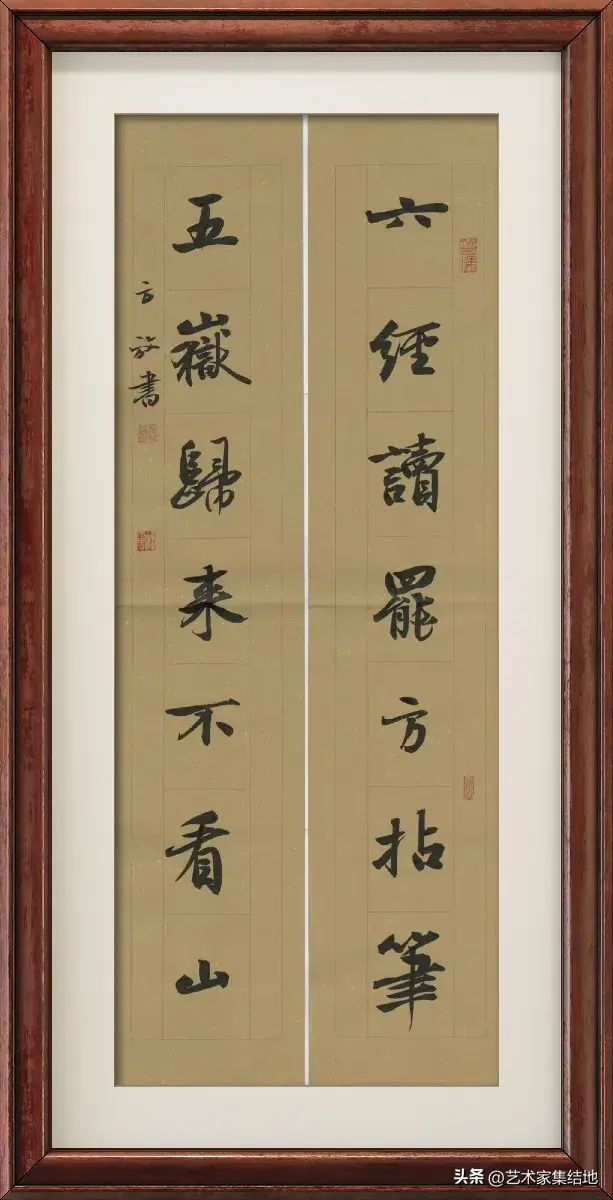 六經讀罷方拈筆
五嶽歸来不看山
方放書
头条 @艺术家集结地